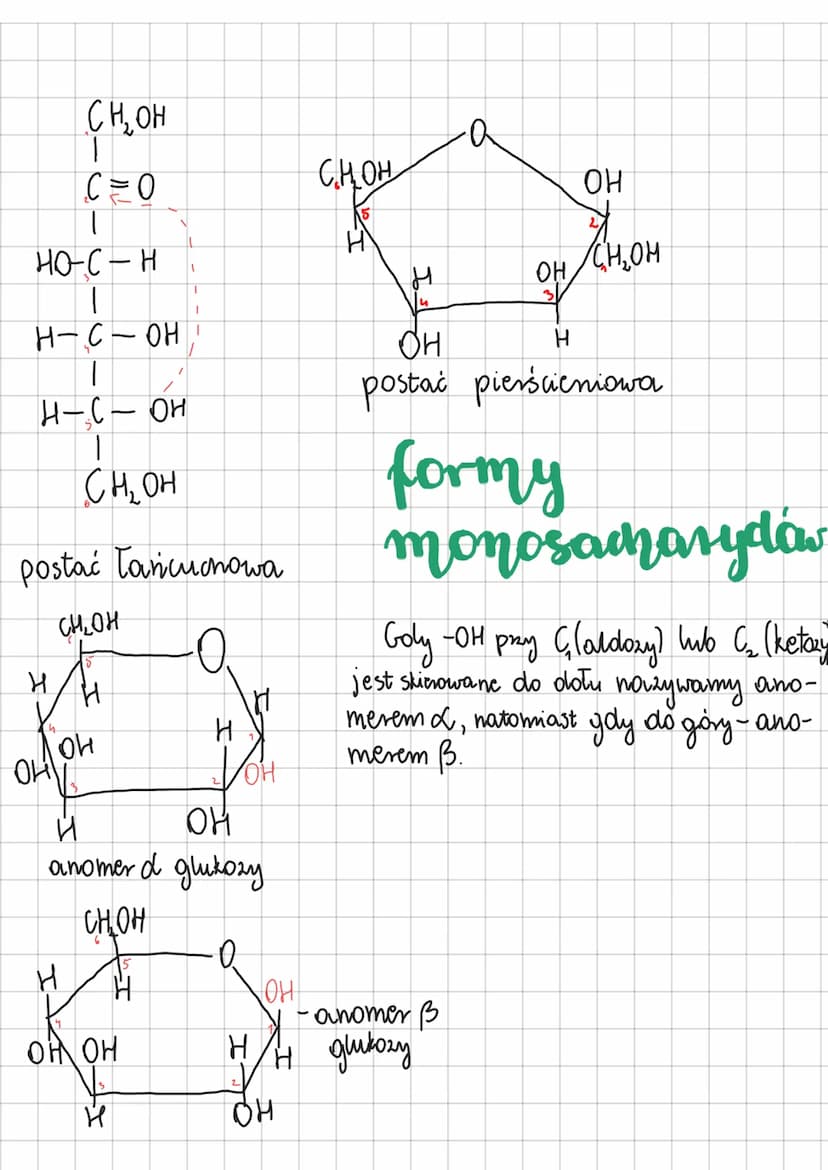 CH₂OH
C=O
HO-C-H
H-C-OH
H-C-OH
CH₂OH
postać łańcuchowa
O
C₆H₂OH
5
H
H
4
OH
OH
2
C₁H₂OH
OH
3
H
postać pierścieniowa
formy
monosacharydów
Gdy -OH przy C₁(aldozy) lub C₂ (ketozy)
jest skierowane do dołu nazywamy ano-
merem α, natomiast gdy do góry - ano-
merem β.
CH₂OH
O
5
H
H
4
OH
OH
3
H
H
2
OH
H
1
OH
anomer α glukozy
CH₂OH
6
O
5
H
H
4
OH
OH
3
H
H
2
OH
OH
1
H
- anomer β
glukozy